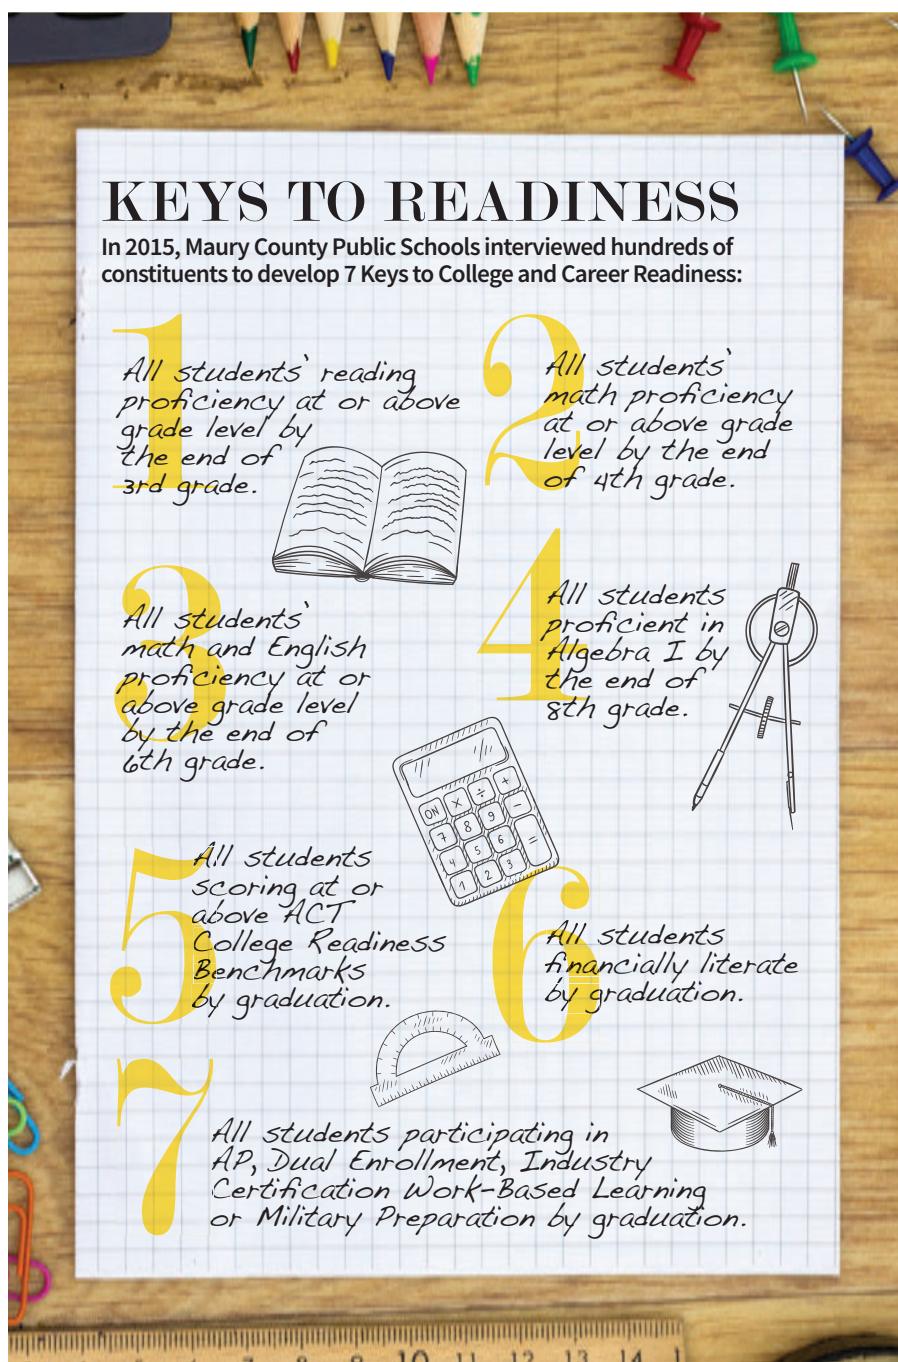 KEYS TO READINESS
In 2015, Maury County Public Schools interviewed hundreds of
constituents to develop 7 Keys to College and Career Readiness:
1
All students' reading
proficiency at or above
grade level by
the end of
3rd grade.
2
All students'
math proficiency
at or above grade
level by the end
of 4th grade.
3
All students'
math and English
proficiency at or
above grade level
by the end of
6th grade.
4
All students
proficient in
Algebra I by
the end of
8th grade.
ON × ÷ +
7 8 9 −
4 5 6 =
1 2 3
5
All students
scoring at or
above ACT
College Readiness
Benchmarks
by graduation.
6
All students
financially literate
by graduation.
7
All students participating in
AP, Dual Enrollment, Industry
Certification Work-Based Learning
or Military Preparation by graduation.
10 11 12 13 14